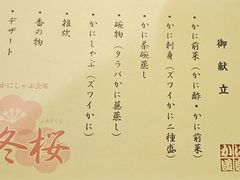 御献立
・かに前菜（かに酢・かに前菜）
・かに刺身（ズワイかに二種盛）
・かに茶碗蒸し
・碗物（タラバかに薯蒸し）
・かにしゃぶ（ズワイかに）
・雑炊
・香の物
・デザート
かにしゃぶ会席
冬桜
ふゆざくら